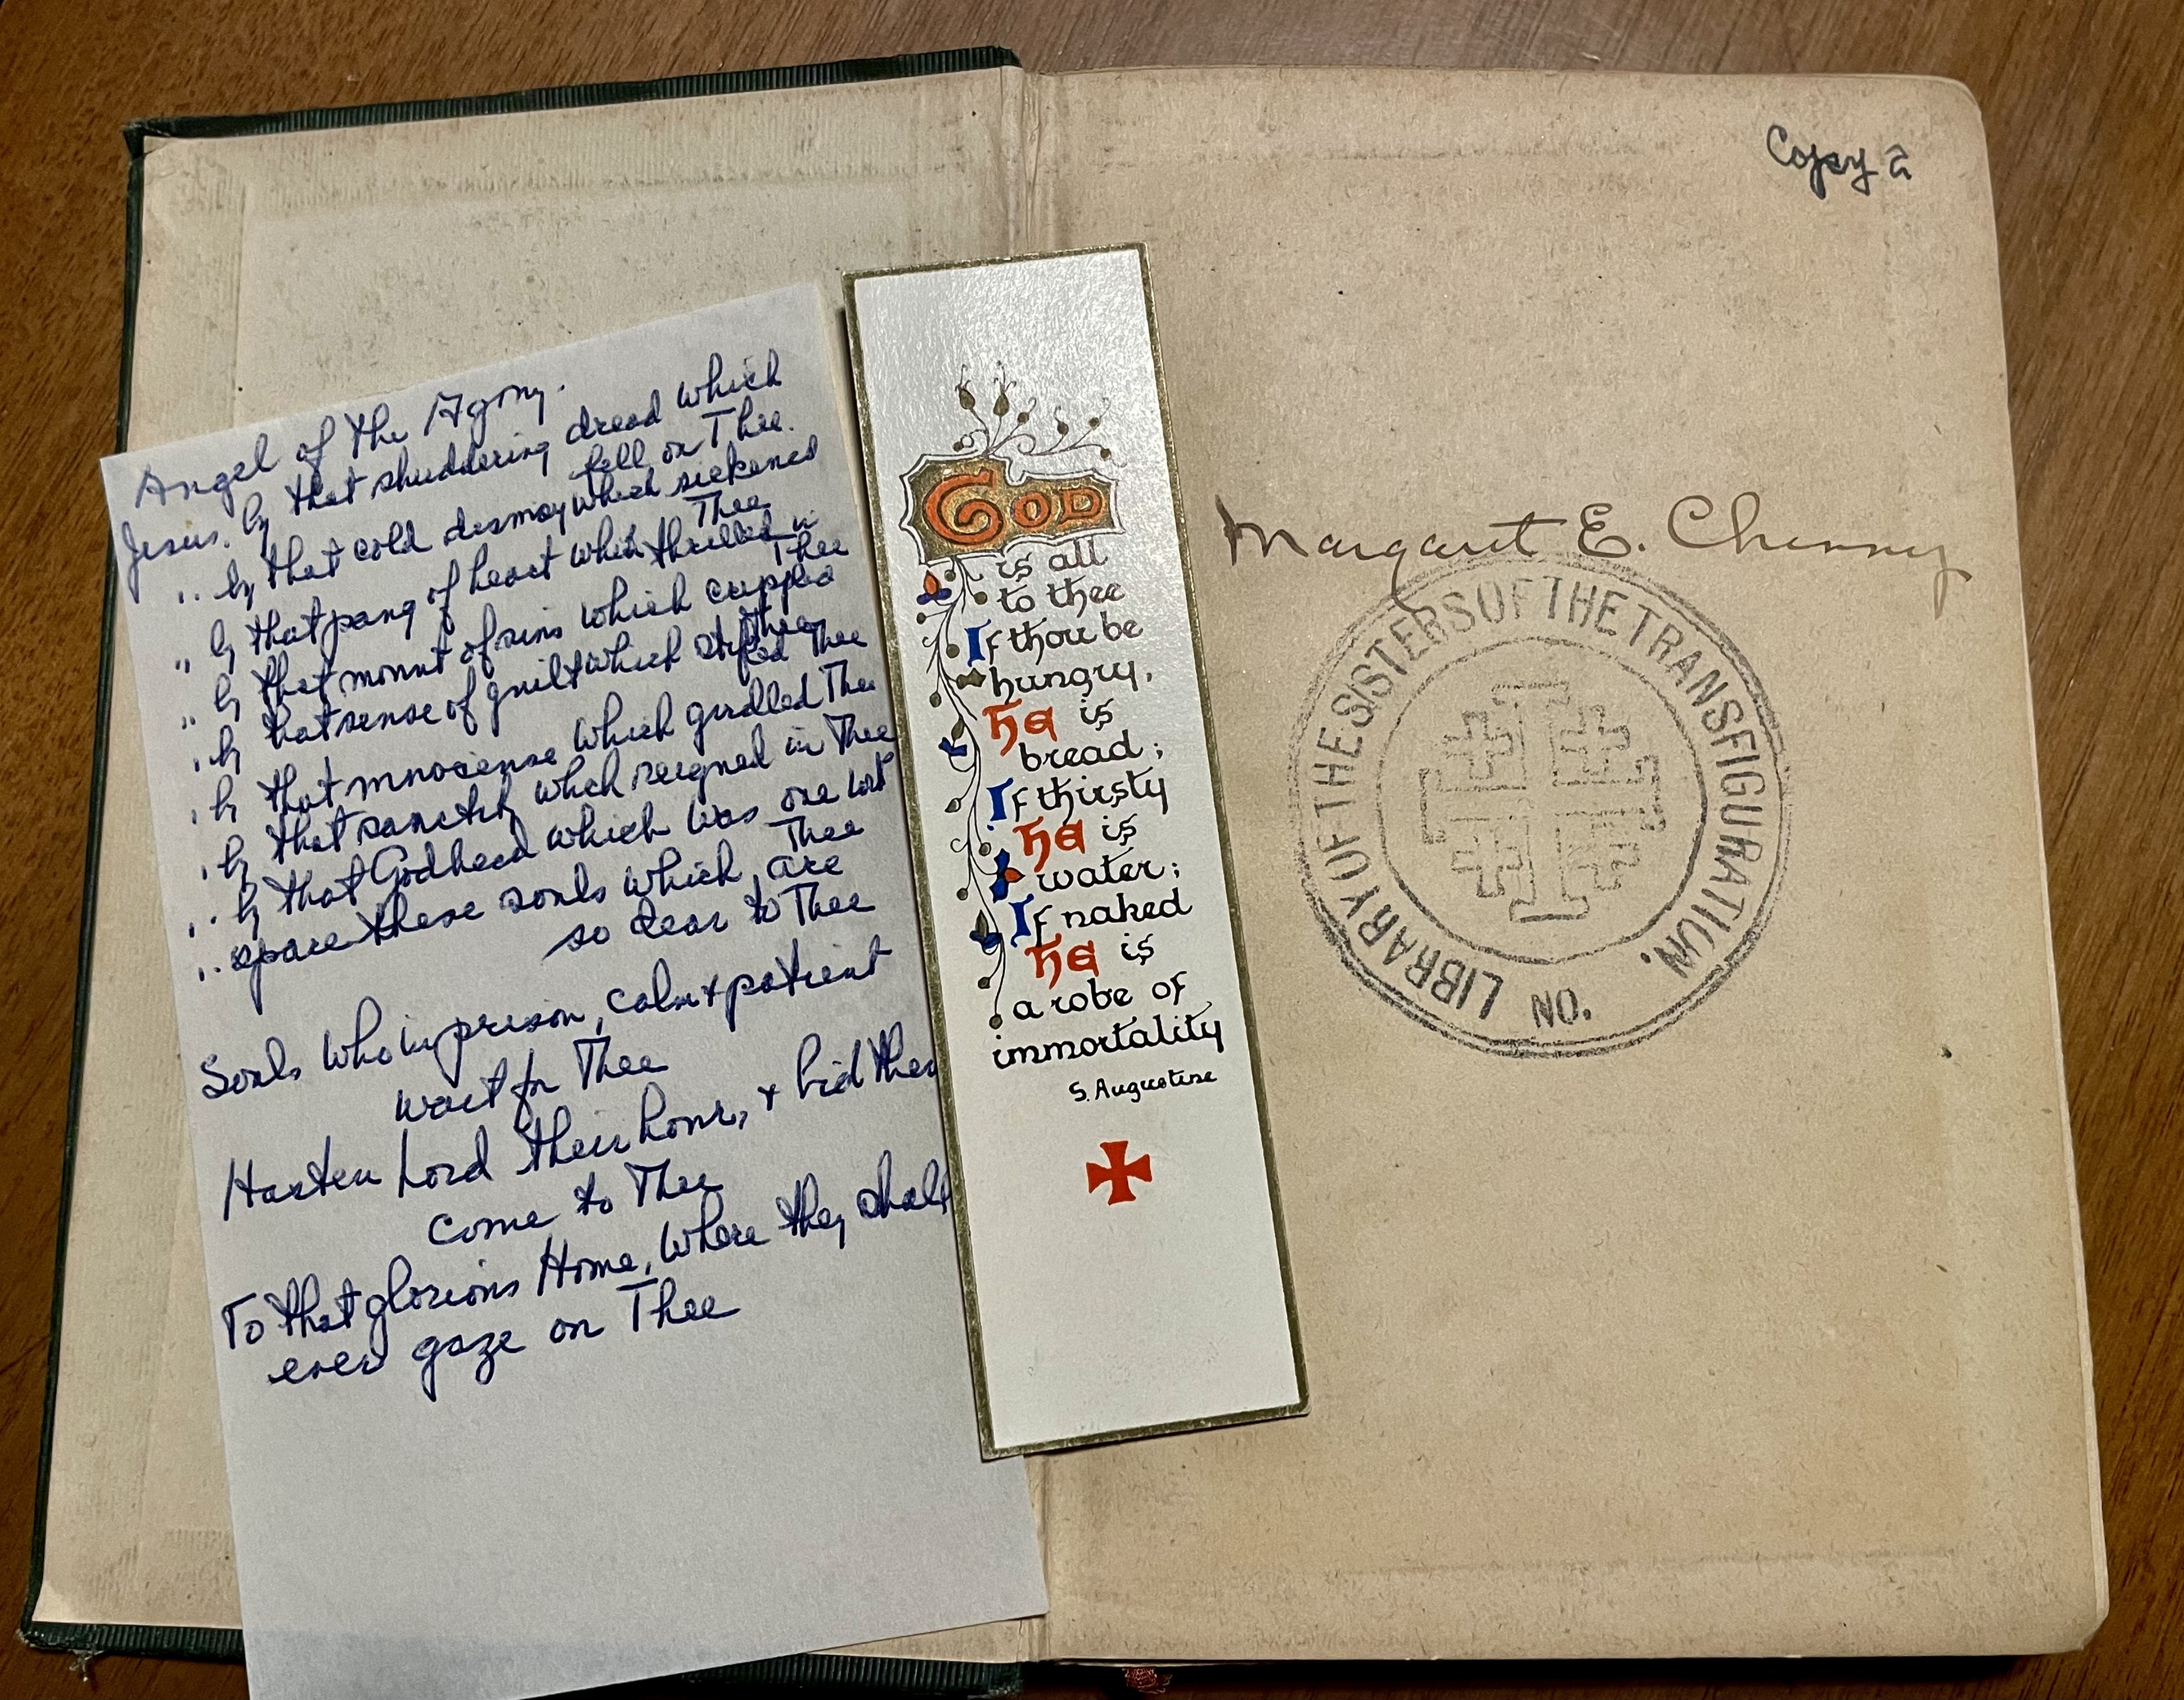 Angel of the Agony.
Jesus. by that shuddering dread which
fell on Thee.
.. by that cold dismay which sickened
Thee
" by that pang of heart which thrilled in
Thee
" by that mount of sins which crippled
Thee
.. by that sense of guilt which stifled Thee
.. by that innocense which girdled Thee
.. by that sanctity which reigned in Thee
.. by that Godhead which was one with
Thee
.. spare these souls which are
so dear to Thee
Souls who in prison, calm + patient
wait for Thee
Hasten Lord their hour, + bid them
come to Thee
To that glorious Home, where they shall
ever gaze on Thee
GOD
is all
to thee
If thou be
hungry,
HE is
bread;
If thirsty
HE is
water;
If naked
HE is
a robe of
immortality
S. Augustine
Copy 2
Margaret E. Chenney
LIBRARY OF THE SISTERS OF THE TRANSFIGURATION.
NO.